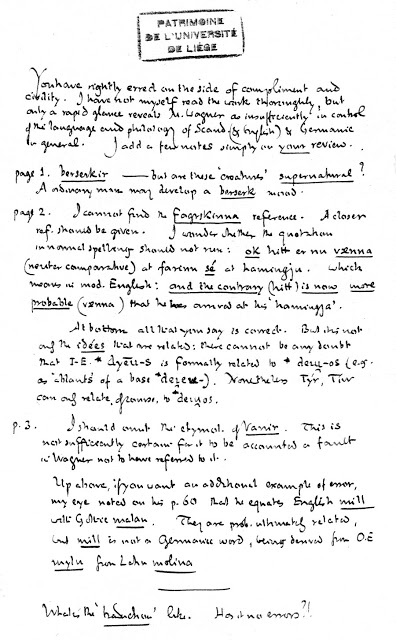 PATRIMOINE
DE L'UNIVERSITÉ
DE LIÈGE
You have rightly erred on the side of compliment and
civility. I have not myself read the work thoroughly, but
only a rapid glance reveals M. Wagner as insufficiently in control
of the language and philology of Scand. (& English) & Germanic
in general. I add a few notes simply on your review.
page 1. berserkir — but are these 'creatures' supernatural?
A ordinary man may develop a berserk mood.
page 2. I cannot find the Fagrskinna reference. A closer
ref. should be given. I wonder whether the quotation
in normal spelling should not run: ok hitt er nu vænna
(neuter comparative) at farinn sé at hamingju. which
means in mod. English: and the contrary (hitt) is now more
probable (vænna) that he has arrived at his 'hamingja'.
At bottom all that you say is correct. But it is not
only the idées that are related: there cannot be any doubt
that I-E. * di̯ēu̯-s is formally related to * deiu̯-os (e.g.
as 'ablauts' of a base *dei̯eu̯-). Nonetheless Týr, Tiw
can only relate, of course, to *deiu̯os.
p. 3. I should omit the etymol. of Vanir. This is
not sufficiently certain for it to be accounted a fault
in Wagner not to have referred to it.
Up above, if you want an additional example of error,
my eye noted on his p. 60 that he equates English mill
with Gothic malan. They are prob. ultimately related,
but mill is not a Germanic word, being derived from O.E
mylu from Latin molina
What is the 'traduction' like. Has it no errors?!